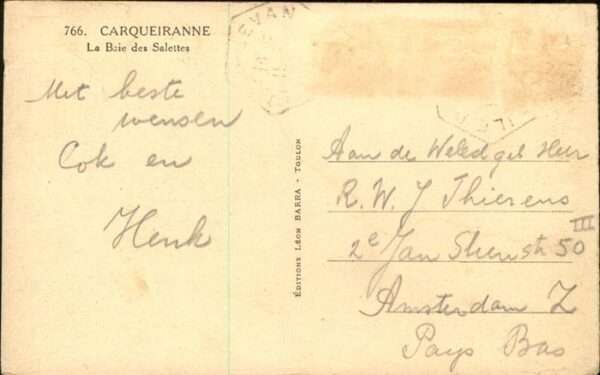 766. CARQUEIRANNE
La Baie des Salettes
Met beste
wensen
Cok en
Henk
ÉDITIONS LÉON BARRA - TOULON
Aan de Weledgeb Heer
R. W. J Thierens
2e Jan Steenstr 50 III
Amsterdam Z
Pays Bas